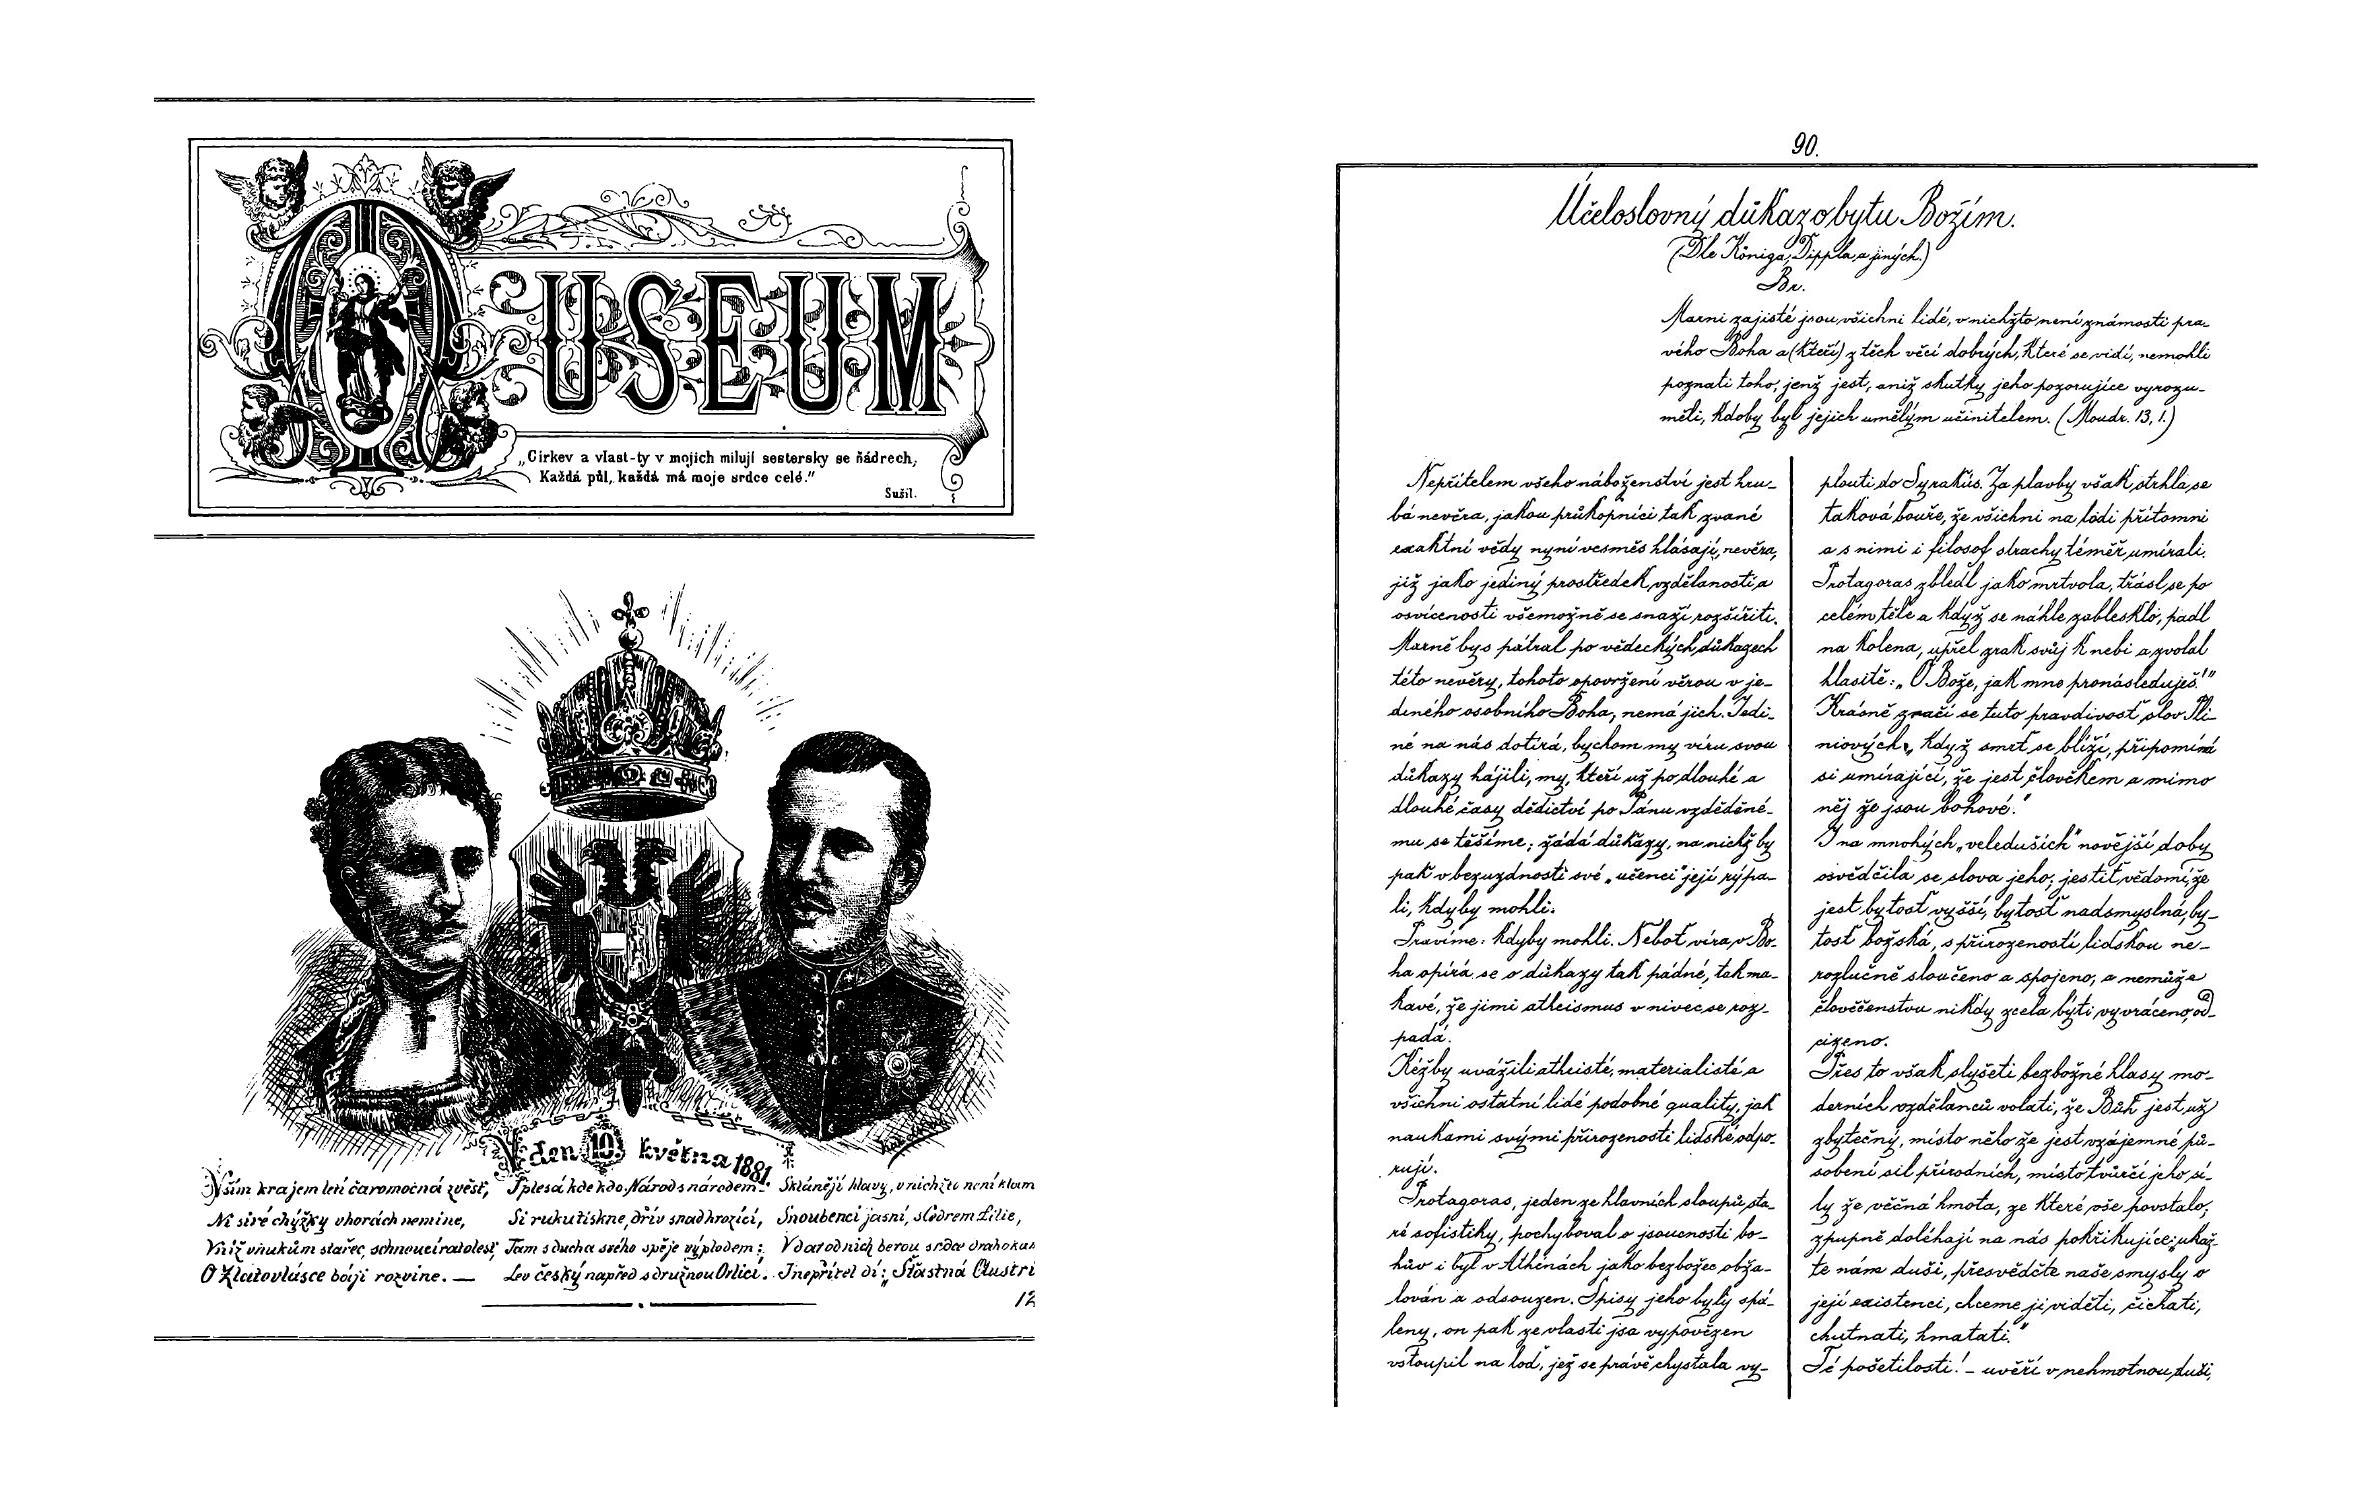 MUSEUM
„Církev a vlast-ty v mojich milují sestersky se ňádrech,
Každá půl, každá má moje srdce celé."
Sušil.
V den 10. května 1881.
Vším krajem letí čaromocná zvěsť,
Ni siré chýžky v horách nemine,
V níž vnukům stařec, schnoucí ratolesť,
O Zlatovlásce báji rozvine. —
I plesá kde kdo. Národ s národem
Si ruku tiskne, dřív snad hrozící,
Tam s ducha svého spěje výplodem;
Lev český napřed s družnou Orlicí.
Sklánějí hlavy, v nichž to není klam
Snoubenci jasní, s Odrem Lilie,
V darod nich berou srdce
I nepřítel dí: „Šťastná Austri
12
90.
Účeloslovný důkaz o bytu Božím.
(Dle Königa, Dippla a jiných.)
Br.
Marni zajisté jsou všichni lidé, v nichžto není známosti pra-
vého Boha a (kteří) z těch věcí dobrých, které se vidí, nemohli
poznati toho, jenž jest, aniž skutky jeho pozorujíce vyrozu-
měli, kdoby byl jejich umělým učinitelem. (Moudr. 13, 1.)
Nepřítelem všeho náboženství jest hru-
bá nevěra, jakou průkopníci tak zvané
exaktní vědy nyní vesměs hlásají, nevěra,
již jako jediný prostředek vzdělanosti a
osvícenosti všemožně se snaží rozšířiti.
Marně bys pátral po vědeckých důkazech
této nevěry, tohoto opovržení věrou v je-
diného osobního Boha, nemá jich. Jedi-
né na nás dotírá, bychom my víru svou
důkazy hájili, my, kteří už po dlouhé a
dlouhé časy dědictví po Pánu vzděděné-
mu se těšíme; žádá důkazy, na nichž by
pak v bezuzdnosti své „učenci" její rýpa-
li, kdyby mohli.
Pravíme: kdyby mohli. Neboť víra v Bo-
ha opírá se o důkazy tak pádné, tak ma-
kavé, že jimi atheismus v nivec se roz-
padá.
Kéžby uvážili atheisté, materialisté a
všichni ostatní lidé podobné quality, jak
naukami svými přirozenosti lidské odpo-
rují.
Protagoras, jeden ze hlavních sloupů sta-
ré sofistiky, pochyboval o jsoucnosti bo-
hův i byl v Athénách jako bezbožec obža-
lován a odsouzen. Spisy jeho byly spá-
leny, on pak ze vlasti jsa vypovězen
vstoupil na loď, jež se právě chystala vy-
plouti do Syrakús. Za plavby však strhla se
taková bouře, že všichni na lodi přítomni
a s nimi i filosof strachy téměř umírali.
Protagoras zbledl jako mrtvola, třásl se po
celém těle a když se náhle zablesklo, padl
na kolena, upřel zrak svůj k nebi a zvolal
hlasitě: „O Bože, jak mne pronásleduješ!"
Krásně značí se tuto pravdivosť slov Pli-
niových: „Když smrť se blíží, připomíná
si umírající, že jest člověkem a mimo
něj že jsou bohové."
I na mnohých „veleduších" novější doby
osvědčila se slova jeho; jestiť vědomí, že
jest bytosť vyšší, bytosť nadsmyslná, by-
tosť božská, s přirozeností lidskou ne-
rozlučně sloučeno a spojeno, a nemůže
člověčenstvu nikdy zcela býti vyvráceno, od-
cizeno.
Přes to však slyšeti bezbožné hlasy mo-
derních vzdělanců volati, že Bůh jest už
zbytečný, místo něho že jest vzájemné pů-
sobení sil přírodních, místo tvůrčí jeho sí-
ly že věčná hmota, ze které vše povstalo,
zpupně doléhají na nás pokřikujíce: „ukaž-
te nám duši, přesvědčte naše smysly o
její existenci, chceme ji viděti, čichati,
chutnati, hmatati."
Té pošetilosti! — uvěří v nehmotnou duši,